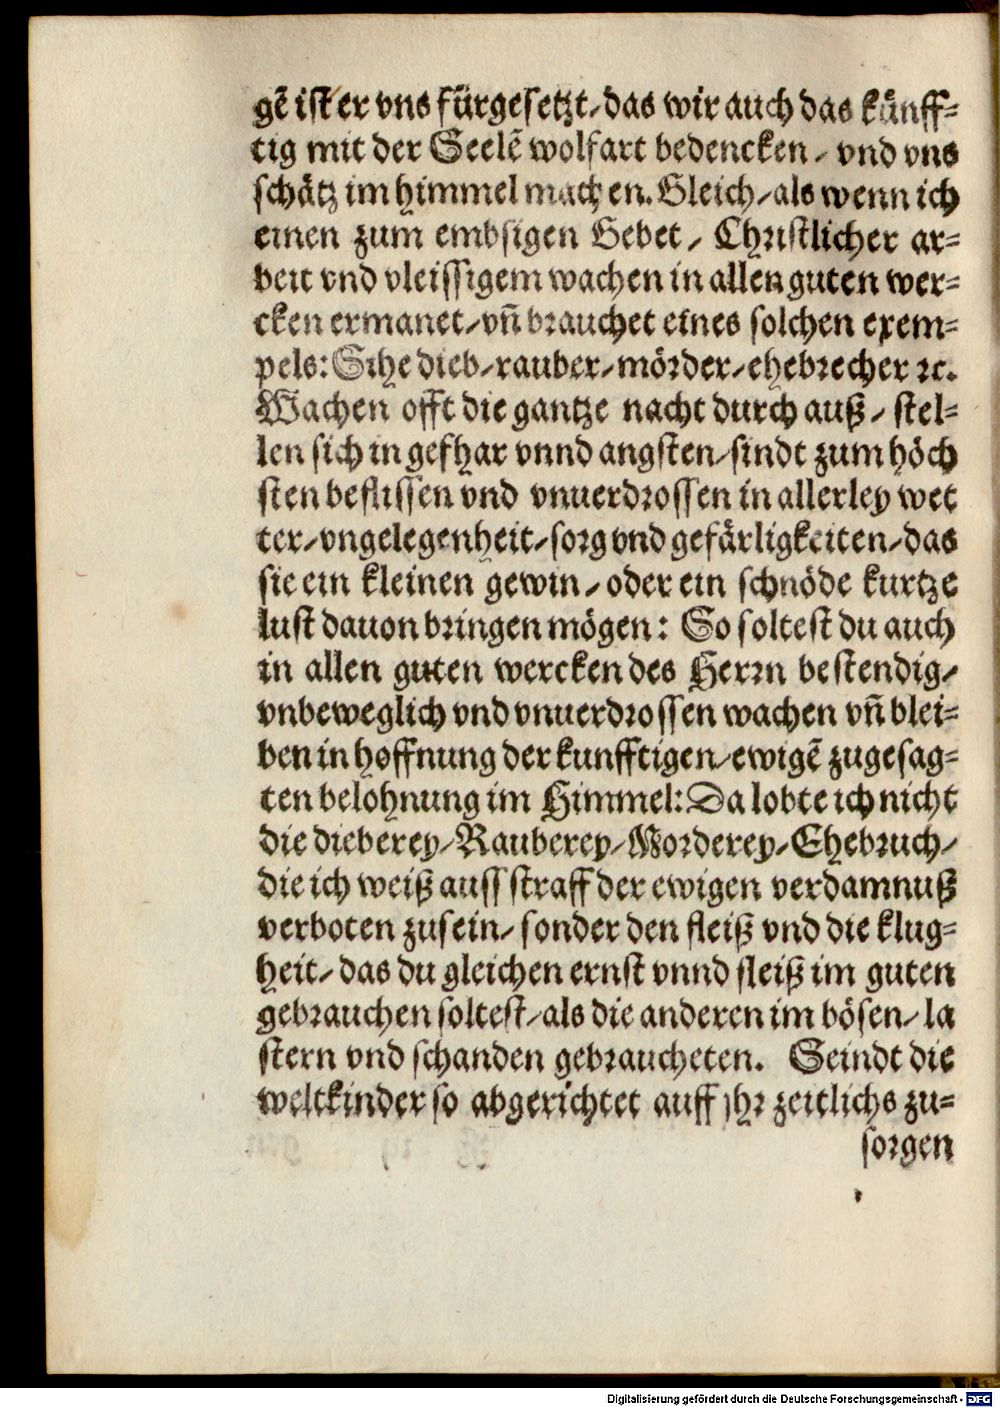 gẽ ist er vns fürgesetzt/das wir auch das künff=
tig mit der Seelẽ wolfart bedencken/ vnd vns
schätz im himmel machen. Gleich/als wenn ich
einen zum embsigen Gebet/ Christlicher ar=
beit vnd vleissigem wachen in allen guten wer=
cken ermanet/vñ brauchet eines solchen exem=
pels: Sihe dieb/rauber/mörder/ehebrecher ꝛc.
Wachen offt die gantze nacht durch auß/ stel=
len sich in gefhar vnnd angsten/sindt zum höch
sten beflissen vnd vnuerdrossen in allerley wet
ter/vngelegenheit/sorg vnd gefärligkeiten/das
sie ein kleinen gewin/oder ein schnöde kurtze
lust dauon bringen mögen: So soltest du auch
in allen guten wercken des Herrn bestendig/
vnbeweglich vnd vnuerdrossen wachen vñ blei=
ben in hoffnung der kunfftigen/ewigẽ zugesag=
ten belohnung im Himmel: Da lobte ich nicht
die dieberey/Rauberey/Morderey/Ehebruch/
die ich weiß auss straff der ewigen verdamnuß
verboten zusein/sonder den fleiß vnd die klug=
heit/das du gleichen ernst vnnd fleiß im guten
gebrauchen soltest/als die anderen im bösen/la
stern vnd schanden gebraucheten. Seindt die
weltkinder so abgerichtet auff jhr zeitlichs zu=
sorgen
Digitalisierung gefördert durch die Deutsche Forschungsgemeinschaft - DFG